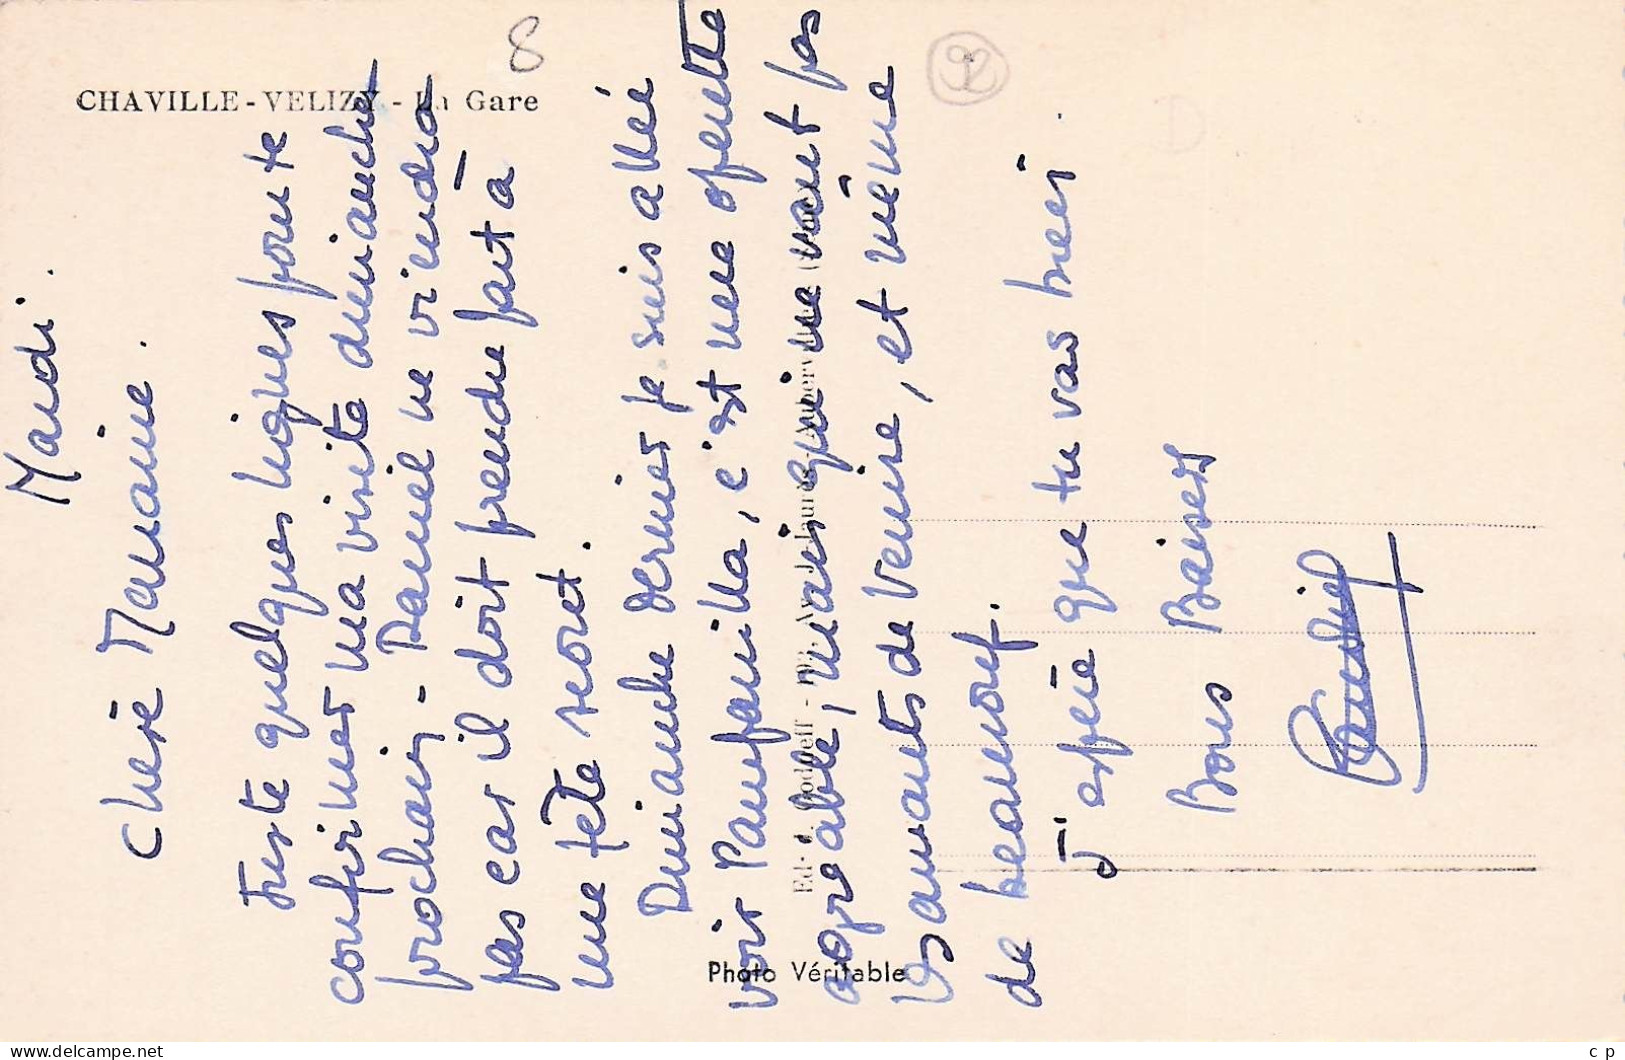 CHAVILLE-VELIZY - La Gare
8
92
Mardi.
Chère Mamaine.
Juste quelques lignes pour te
confirmer ma visite dimanche
prochain - Daniel ne viendra
pas car il doit prendre part à
une fête sport.
Dimanche dernier je suis allée
voir Panfanilla, c'est une operette
agréable, mais qui ne vaut pas
les amants de Venise, et même
de beaucoup.
J'espère que tu vas bien.
Bons Baisers
Photo Véritable
delcampe.net
c p